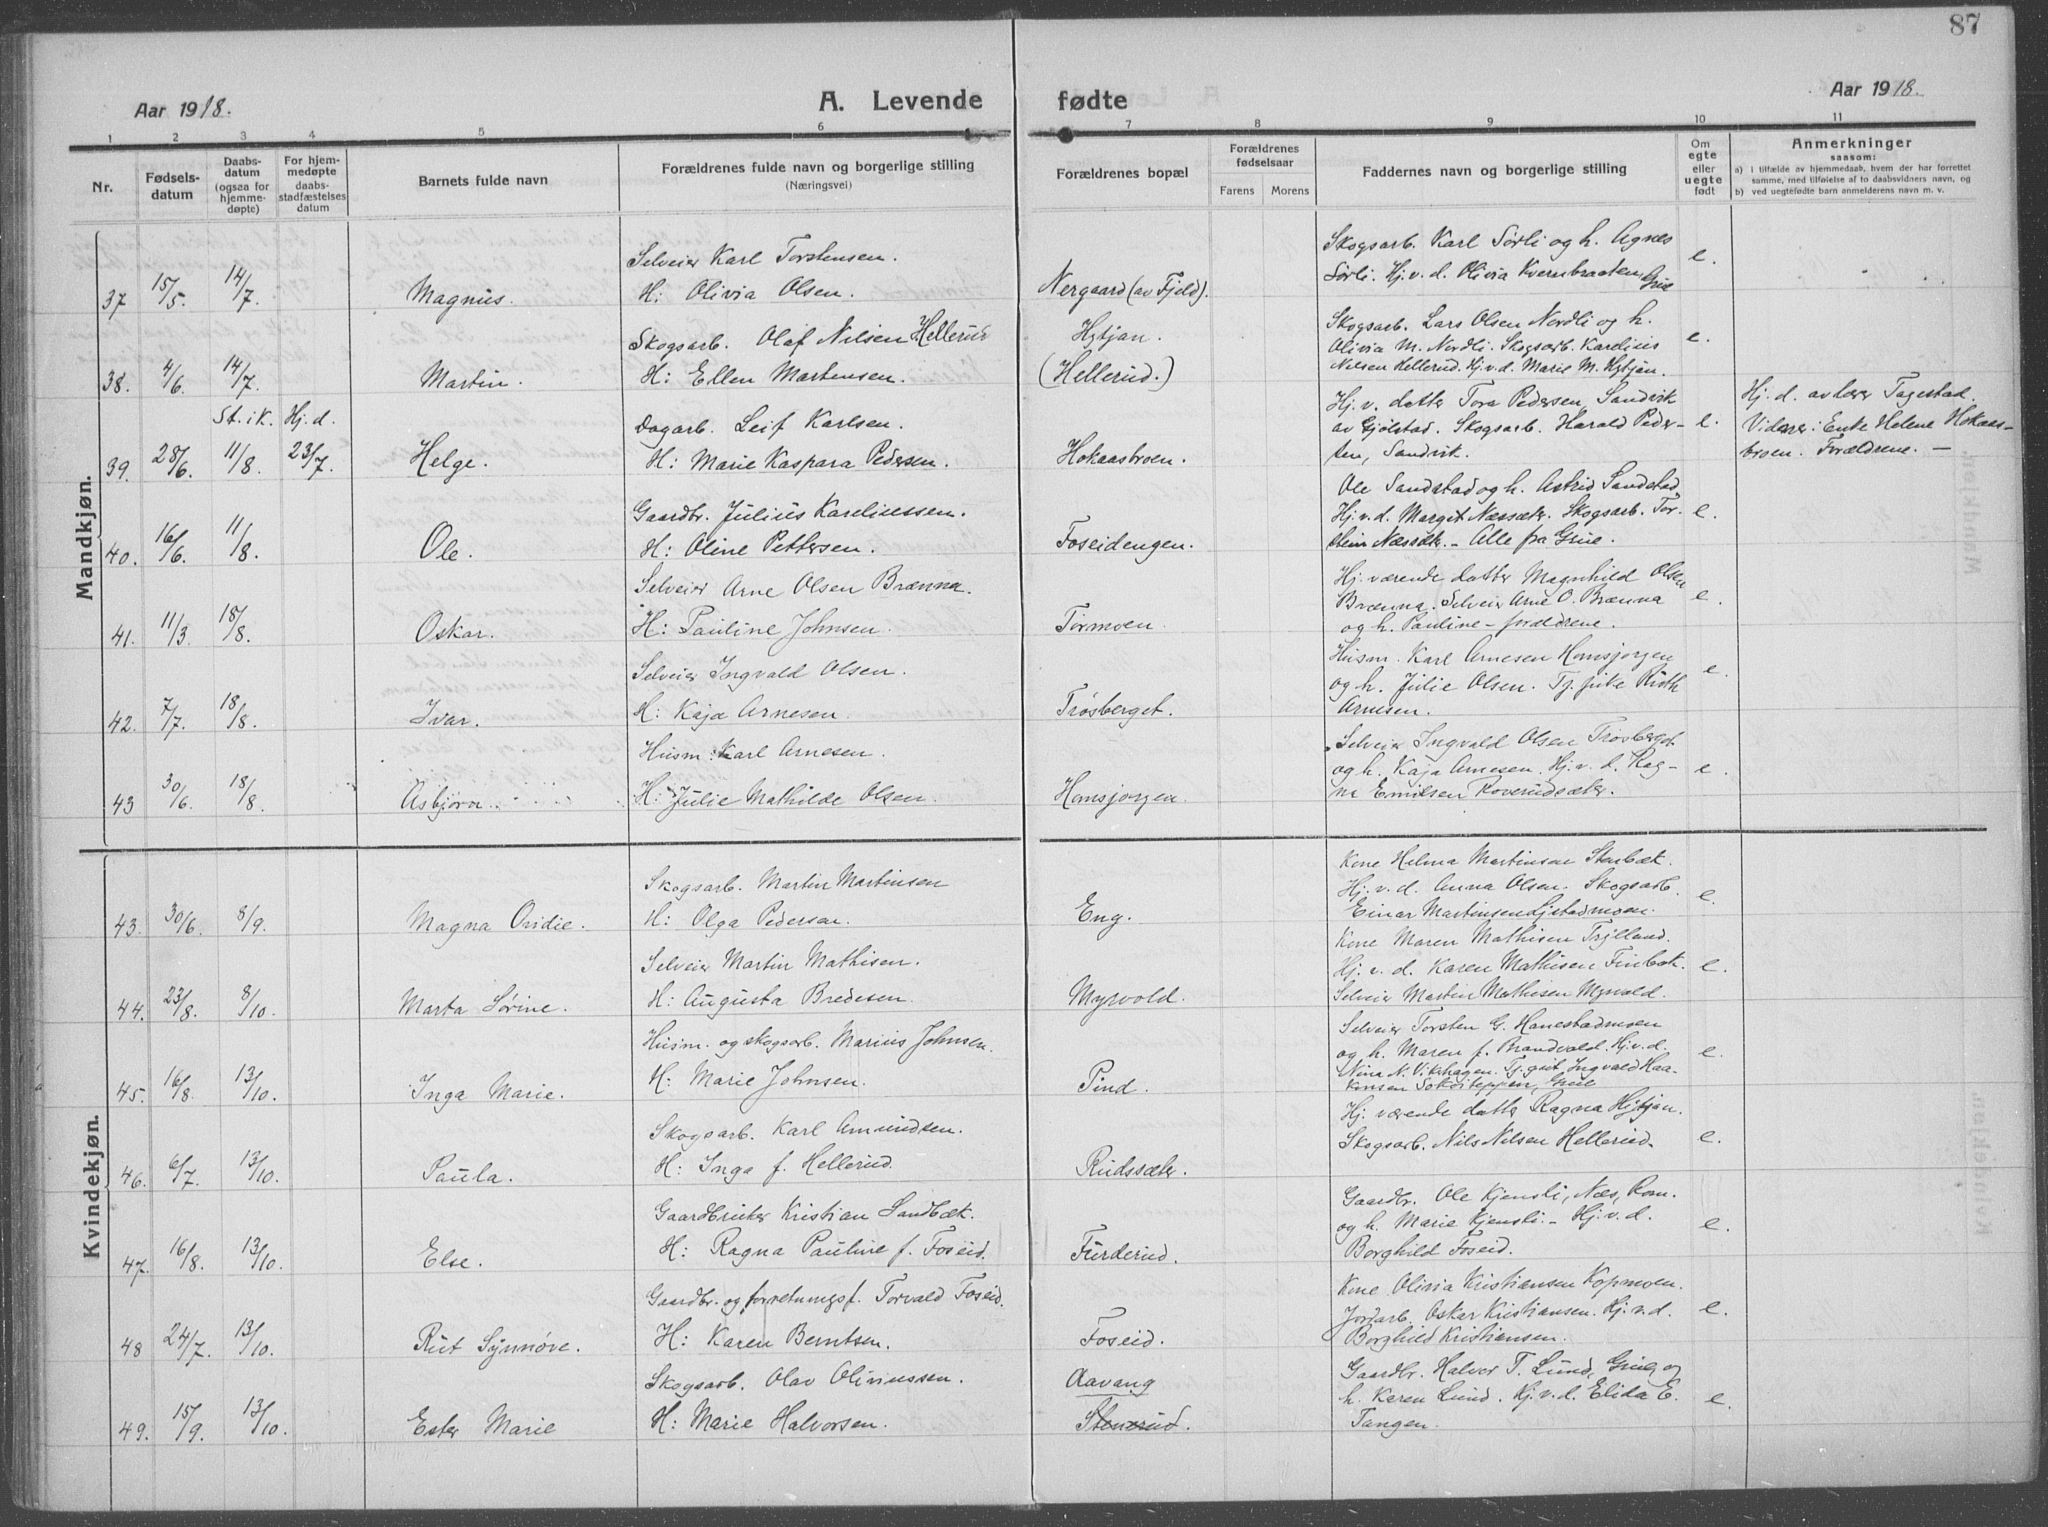 87
Aar 1918.
A. Levende fødte
Aar 1918.
1 2 3 4 5 6 7 8 9 10 11
Nr.
Fødsels-
datum
Daabs-
datum
(ogsaa for
hjemme-
døpte)
For hjem-
medøpte
daabs-
stadfæstelses
datum
Barnets fulde navn
Forældrenes fulde navn og borgerlige stilling
(Næringsvei)
Forældrenes bopæl
Forældrenes
fødselsaar
Farens Morens
Faddernes navn og borgerlige stilling
Om
egte
eller
uegte
født
Anmerkninger
saasom:
a) i tilfælde av hjemmedaab, hvem der har forrettet
samme, med tilføielse af to daabsvidners navn, og
b) ved uegtefødte barn anmelderens navn m. v.
Mandkjøn.
Selveier Karl Torstensen. Skogsarb. Karl Sørli og h. Agnes e.
37 15/5. 14/7. Magnus. H: Olivia Olsen. Nergaard (av Fjeld). Sørli. Hj. v. d. Olivia Kvernbraaten Grue
Skogsarb. Olaf Nilsen Hellerud Hytjan. Skogsarb. Lars Olsen Nordli og h. e.
Olivia M. Nordli. Skogsarb. Karelius
38. 4/6. 14/7. Martin. H: Ellen Martensen. (Hellerud.) Nilsen Hellerud. Hj. v. d. Marie M. Hytjan.
St. i k. Hj. d. Dagarb. Leif Karlsen. Hj. v. datter Tora Pedersen, Sandvik Hj. d. av lærer Tagestad.
av Gjølstad. Skogsarb. Harald Peder- e. Vidner: Enke Helene Hokaas-
39. 28/6. 11/8. 23/7. Helge. H: Marie Kaspara Pedersen. Hokaasbroen. sen, Sandvik. broen. Forældrene. —
Gaardbr. Julius Kareliussen. Ole Sandstad og h. Astrid Sandstad
Hj. v. d. Margit Næssæter. Skogsarb. Tor- e.
40. 16/6. 11/8. Ole. H: Oline Pettersen. Foseidengen. stein Næssæter. – Alle fra Grue.
Selveier Arne Olsen Brænna. Hj. værende datter Magnhild Olsen
Brænna. Selveier Arne O. Brænna e.
41. 11/3. 18/8. Oskar. H: Pauline Johnsen. Tormoen. og h. Pauline – forældrene.
Selveier Ingvald Olsen. Husm. Karl Arnesen Homsjorgen
og h. Julie Olsen. Tj. pike Ruth e.
42. 7/7. 18/8. Ivar. H: Kaja Arnesen. Trøsberget. Arnesen.
Husm. Karl Arnesen. Selveier Ingvald Olsen Trøsberget
og h. Kaja Arnesen. Hj. v. d. Rag- e.
43 30/6. 18/8. Asbjørn. H: Julie Mathilde Olsen. Homsjorgen. na Emilsen Roverudsæter.
Kvindekjøn.
Skogsarb. Martin Martinsen Kone Helma Martinsen Starbæk.
Hj. v. d. Anna Olsen. Skogsarb. e.
43. 30/6. 8/9. Magna Ovidie. H: Olga Pedersen. Eng. Einar Martinsen
Selveier Martin Mathisen. Kone Maren Mathisen
Hj. v. d. Karen Mathisen Finbæk. e.
44. 23/8. 8/10. Marta Sørine. H: Augusta Bredesen. Myrvold. Selveier Martin Mathisen Myrvold.
Husm. og skogsarb. Marius Johnsen. Selveier Torsten G. Hanestadmoen
og h. Maren f. Brandvold. Hj. v. d. e.
45. 16/8. 13/10. Inga Marie. H: Marie Johnsen. Pind. Nina N. Vikhagen. Tj. gut Ingvald Haa-
konsen Grue
Skogsarb. Karl Amundsen. Hj. værende datter Ragna Hytjan.
Skogsarb. Nils Nilsen Hellerud. e.
46. 6/7. 13/10. Paula. H: Inga f. Hellerud. Rudssæter.
Gaardbruker Kristian Sandbæk. Gaardbr. Ole Kjensli, Næs, Rom.
og h. Marie Kjensli. – Hj. v. d. e.
47. 16/8. 13/10. Else. H: Ragna Pauline f. Foseid. Furderud. Borghild Foseid.
Gaardbr. og forretningsf. Torvald Foseid. Kone Olivia Kristiansen Kopmoen.
Jordarb. Oskar Kristiansen. Hj. v. d. e.
48 24/7. 13/10. Rut Synnøve. H: Karen Berntsen. Foseid. Borghild Kristiansen.
Skogsarb. Olav Oliviussen. Aavang Gaardbr. Halvor T. Lund, Grue og
h. Karen Lund. Hj. v. d. Elida E. e.
49. 15/9. 13/10. Ester Marie H: Marie Halvorsen. Stenerud. Tangen.